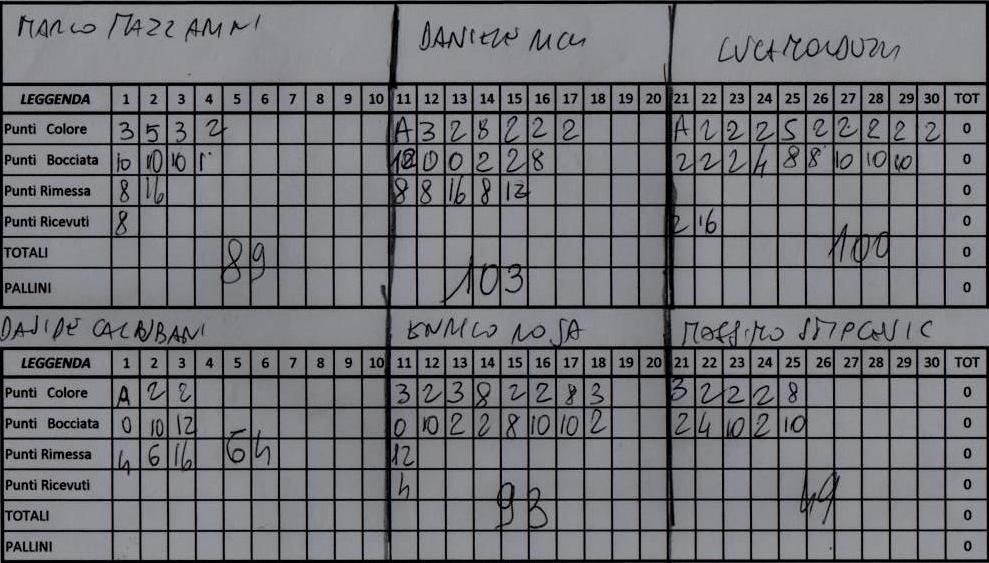 MARCO MAZZARINI DANIELE RICCI LUCA MOLDUZZI
LEGGENDA 1 2 3 4 5 6 7 8 9 10 11 12 13 14 15 16 17 18 19 20 21 22 23 24 25 26 27 28 29 30 TOT
Punti Colore 3 5 3 2 A 3 2 8 2 2 2 A 2 2 2 5 2 2 2 2 2 0
Punti Bocciata 10 10 10 0 0 2 2 8 2 2 2 4 8 8 10 10 10 0
Punti Rimessa 8 16 8 8 16 8 12 0
Punti Ricevuti 8 2 16 0
TOTALI 89 103 100 0
PALLINI 0
DAVIDE ENRICO ROSA MASSIMO STIPCEVIC
LEGGENDA 1 2 3 4 5 6 7 8 9 10 11 12 13 14 15 16 17 18 19 20 21 22 23 24 25 26 27 28 29 30 TOT
Punti Colore A 2 2 3 2 3 8 2 2 8 3 3 2 2 2 8 0
Punti Bocciata 0 10 12 0 10 2 2 8 10 10 2 2 4 10 2 10 0
Punti Rimessa 4 6 16 64 12 0
Punti Ricevuti 4 93 49 0
TOTALI 0
PALLINI 0